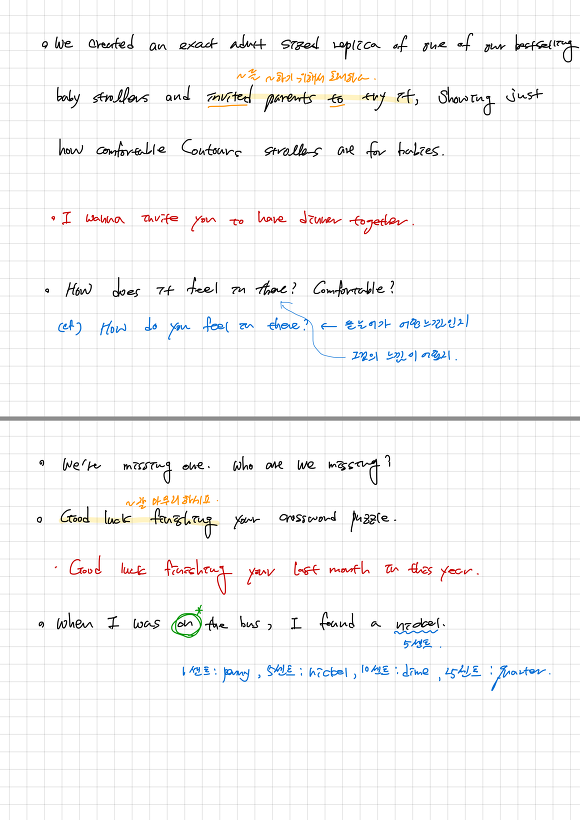 • We created an exact adult sized replica of one of our bestselling
~을 ~하기 위해서 초대하다.
baby strollers and invited parents to try it, showing just
how comfortable Contours strollers are for babies.
• I wanna invite you to have dinner together.
• How does it feel in there? Comfortable?
(cf.) How do you feel in there? ←
그곳의 느낌이 어떤지.
• We're missing one. Who are we missing?
~잘 마무리하세요.
• Good luck finishing your crossword puzzle.
• Good luck finishing your last month in this year.
*
• When I was on the bus, I found a nickel.
5센트.
1센트: penny, 5센트: nickel, 10센트: dime, 25센트: quarter.